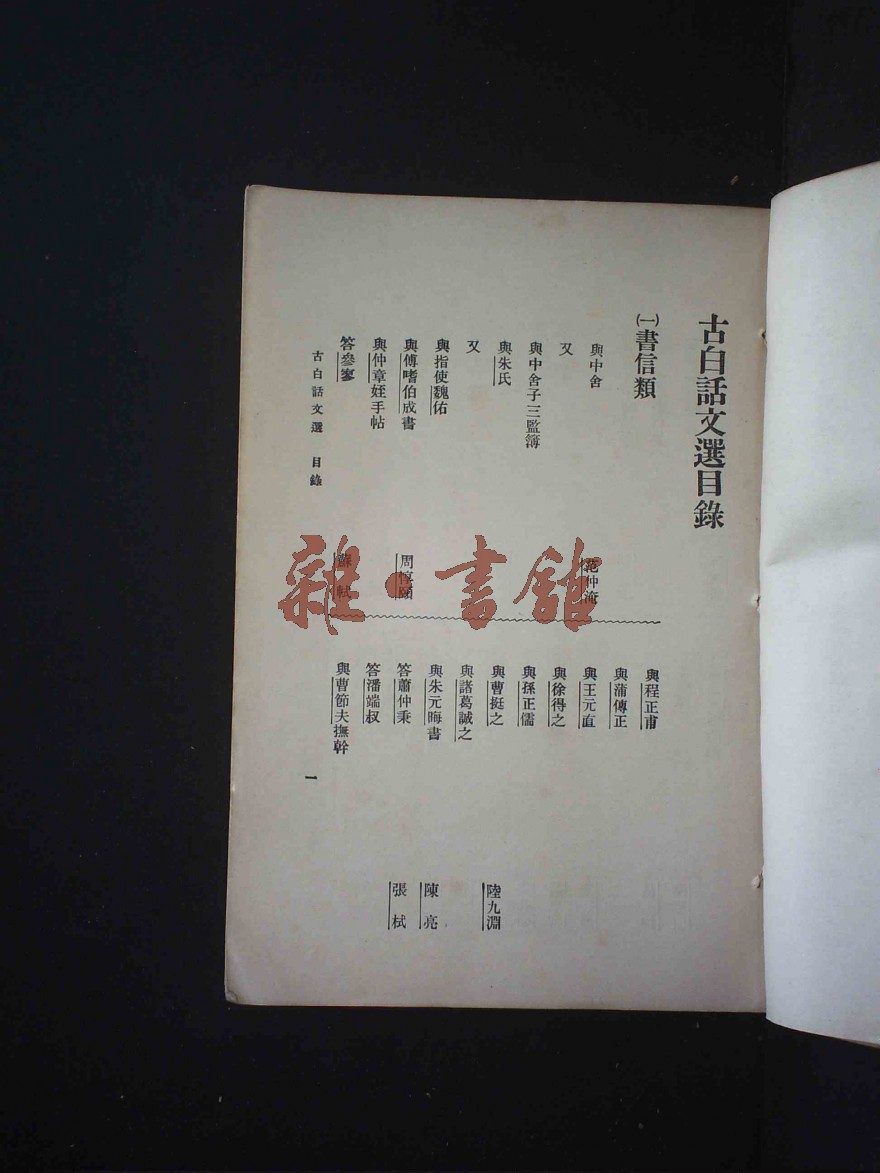 古白話文選目錄
(一)書信類
與中舍 范仲淹
又
與中舍子三監簿
與朱氏
又
與指使魏佑
與傅耆伯成書 周惇頤
與仲章姪手帖
答參寥 蘇軾
與程正甫
與蒲傳正
與王元直
與徐得之
與孫正儒
與曹挺之 陸九淵
與諸葛誠之
與朱元晦書 陳亮
答蕭仲秉 張栻
答潘端叔
與曹節夫撫幹
古白話文選 目錄
一
雜·書館